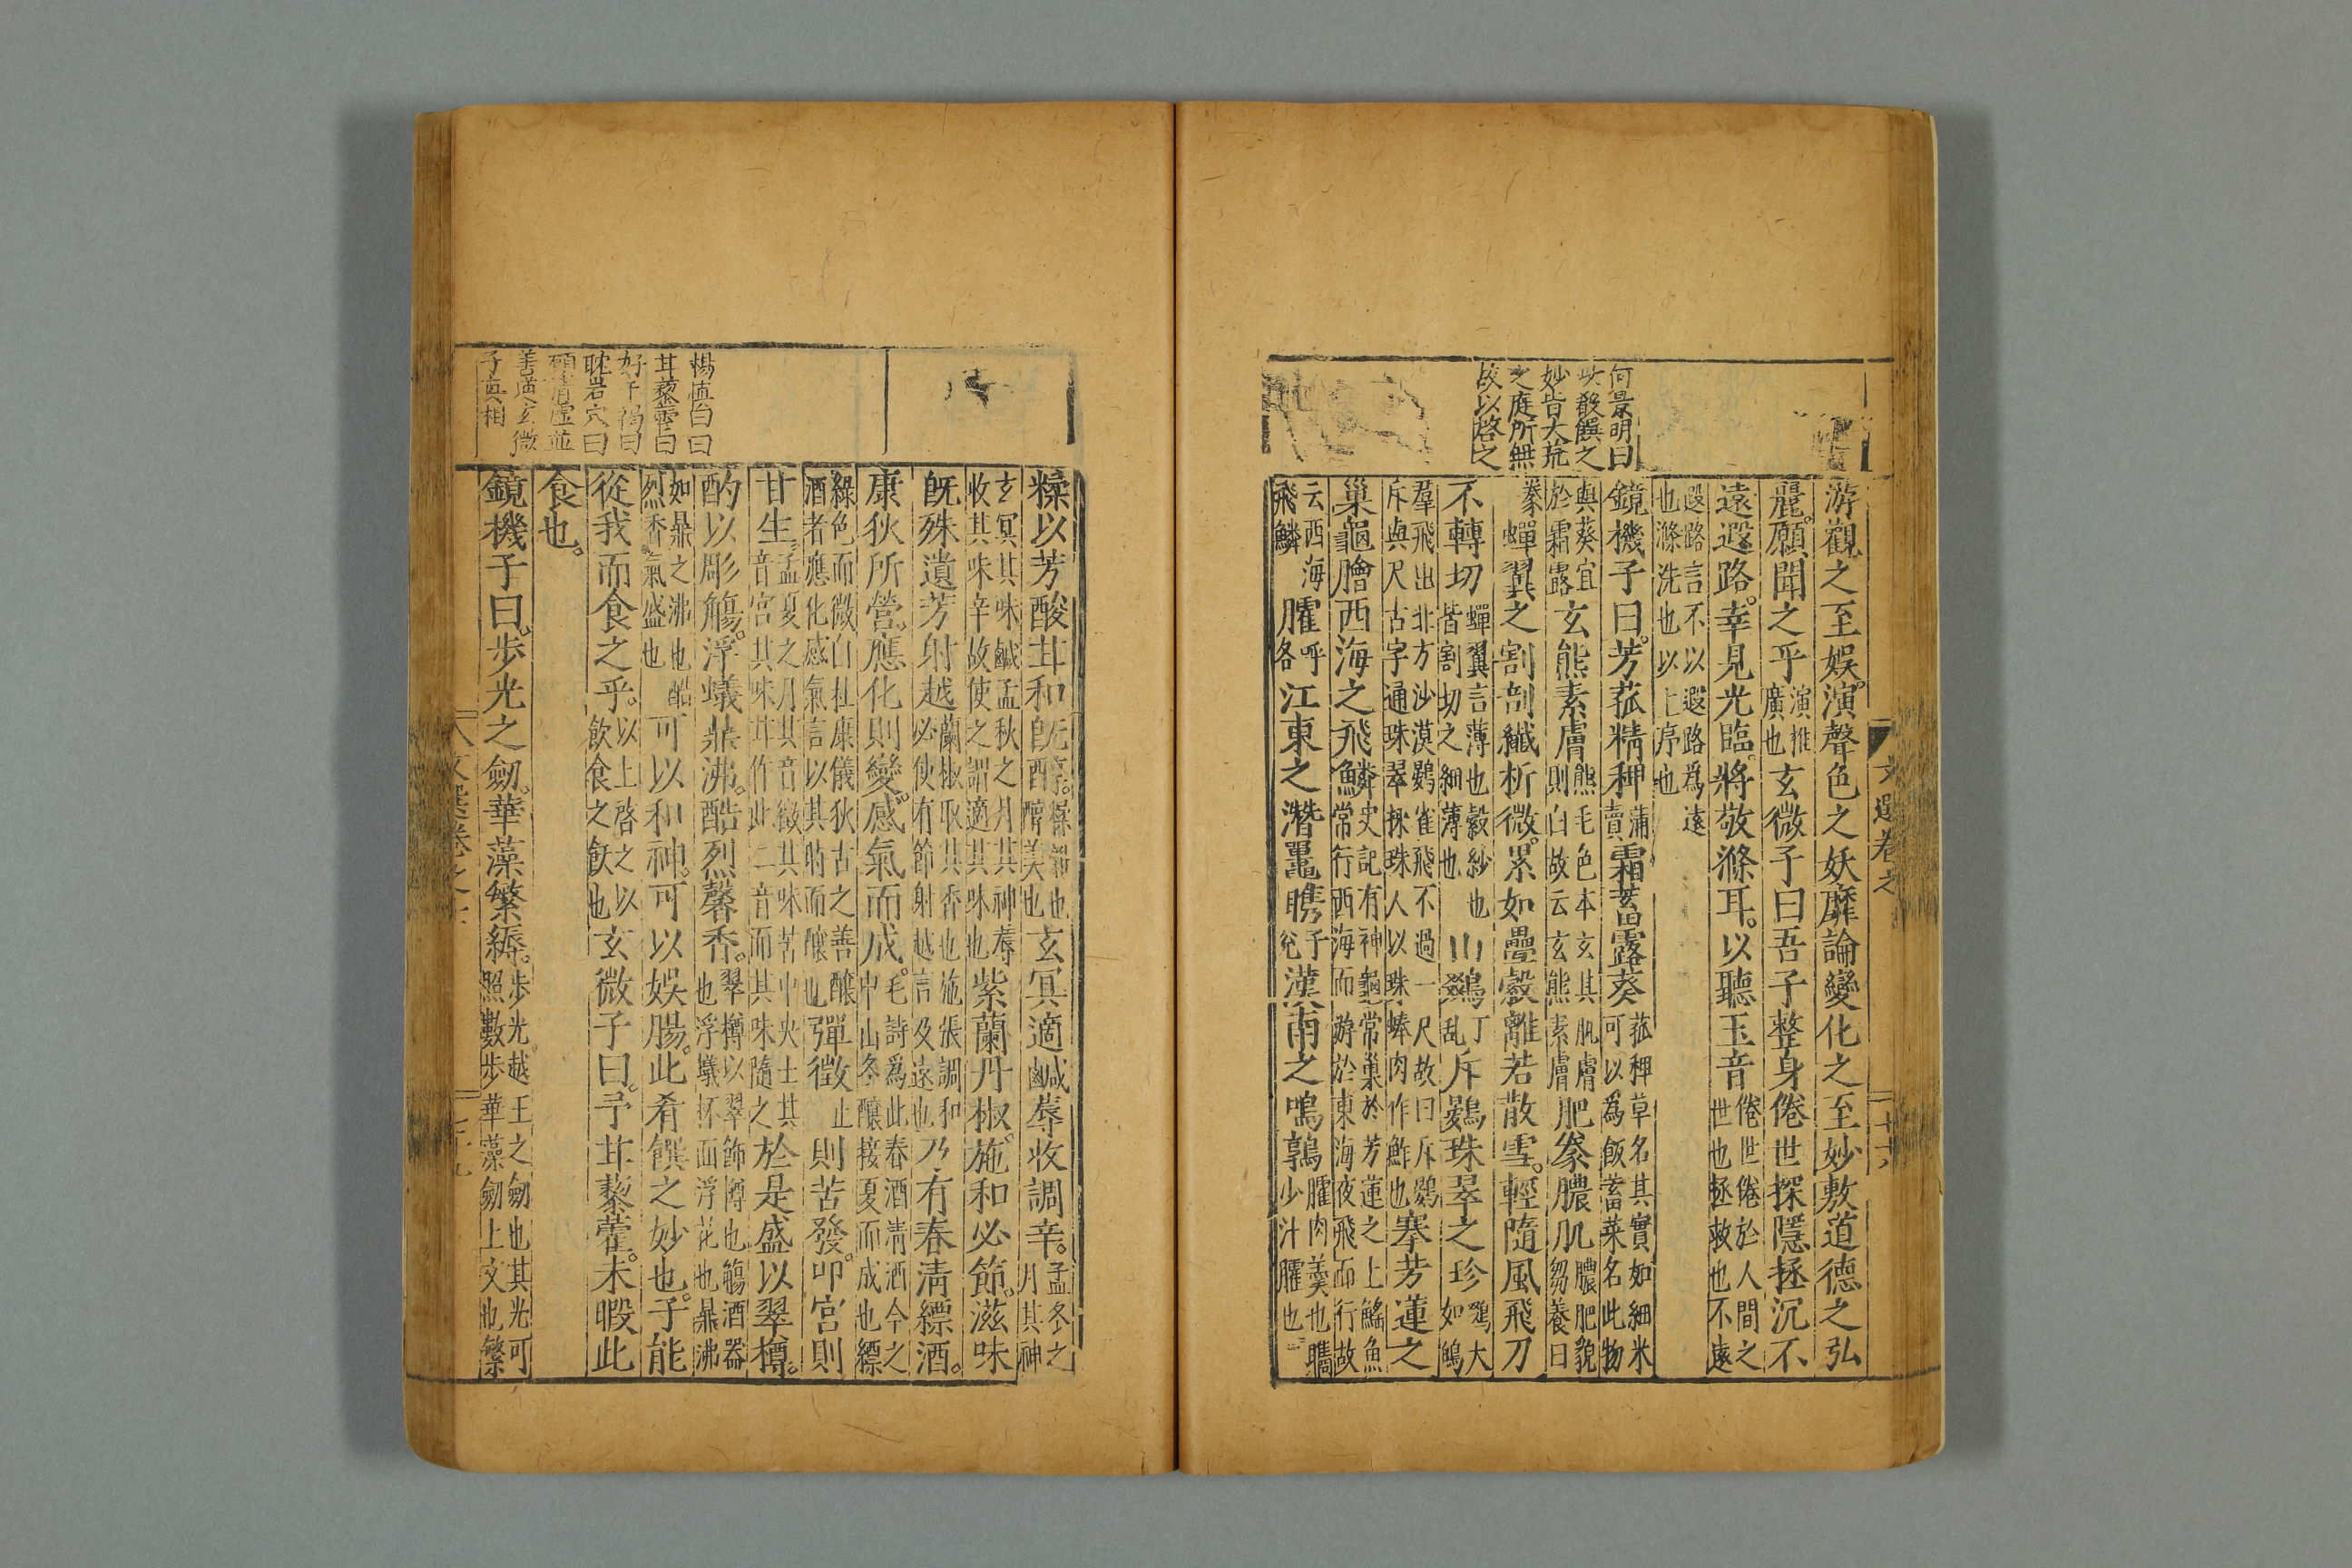 何景明曰
此殽饌之
妙皆大荒
之庭所無
故以啓之
文選卷之
十六
游觀之至娛。演聲色之妖靡論變化之至妙敷道德之弘
麗。願聞之乎演推廣也玄微子曰吾子整身倦世探隱拯沉不
遠遐路。幸見光臨。將敬滌耳。以聽玉音倦世倦於人間之世也拯救也不遠
遐路言不以遐路爲遠也滌洗也以上序也
鏡機子曰。芳菰精粺蒲賣霜蓄露葵菰粺草名其實如細米可以為飯蓄菜名此物
與葵宜於霜露玄熊素膚熊毛色本玄其肌膚則白故云玄熊素膚肥豢膿肌膿肥貌芻養曰
豢蟬翼之割剖纖析微。累如疊縠離若散雪。輕隨風飛刀
不轉切蟬翼言薄也縠紗也皆割切之細薄也山鵽丁乱斥鷃珠翠之珍鵽大如鴿
羣飛出北方沙漠鷃雀飛不過一尺故曰斥鷃斥與尺古字通珠翠採珠人以珠蜯肉作鮓也搴芳蓮之
巢龜膾西海之飛鱗史記有神龜常巢於芳蓮之上鰩魚常行西海而游於東海夜飛而行故
云西海飛鱗臛呼各江東之潛鼉臇子兖漢南之鳴鶉臛肉羹也臇少汁臛也
楊慎曰曰
甘藜霍曰
好干褐曰
耽岩穴曰
願清虛並
善道玄微
子真相
糅以芳酸甘和旣醇。糅雜也醇美也玄冥適鹹蓐收調辛。孟冬之月其神
玄冥其味鹹孟秋之月其神蓐收其味辛故使之調適其味也紫蘭丹椒。施和必節。滋味
旣殊遺芳射越蘭椒取其香也施張調和必使有節射越言及遠也乃有春清縹酒。
康狄所營。應化則變。感氣而成。毛詩爲此春酒清酒今之中山冬釀接夏而成也縹
綠色而微白杜康儀狄古之善釀酒者應化感氣言以其時而釀也彈徵止則苦發。叩宮則
甘生。孟夏之月其音徵其味苦中央土其音宮其味甘作此二音而其味隨之於是盛以翠樽。
酌以彫觴。浮蟻鼎沸。酷烈馨香。翠樽以翠飾樽也觴酒器也浮蟻杯面浮花也鼎沸
如鼎之沸也酷烈香氣盛也可以和神。可以娛腸。此肴饌之妙也。子能
從我而食之乎。以上啓之以飲食之飲也玄微子曰。予甘藜藿。未暇此
食也。
鏡機子曰。步光之劒。華藻繁縟。步光越王之劒也其光可照數步華藻劒上文也繁